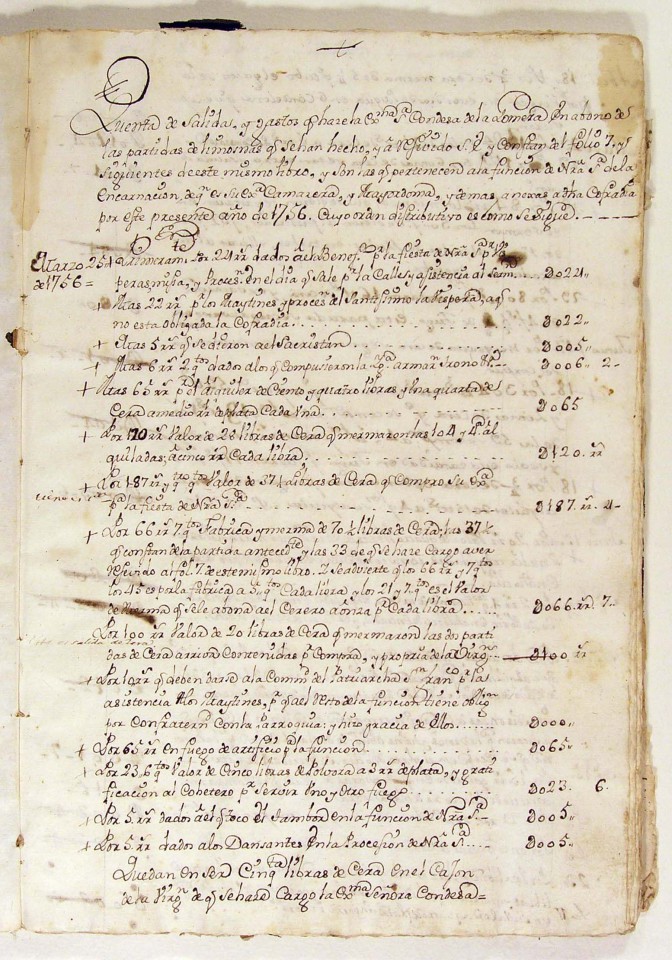 Quenta de Salidas, y gastos q̃ hare la Ex.ma S.ra Condesa de la Gomera En abono de
las partidas de limosnas q̃ se han hecho, y à resevido S. E. y Constan del folio 7. y
siguientes de este mismo libro, y son las q̃ pertenecen a la función de Nrã S.ra de la
Encarnacion, de q.e es Su Ex.a Camarera, y Mayordoma, y demas, anexas a dha Cofradia
por este presente año de 1756. Cuyo orden distributivo es como se sigue
Marzo 25
de 1756=
Primeram.te Por 24 rr dados àl Benef. p.a la fiesta de Nrã S.ra
peras misa, y Proces.n En el dia q̃ Sale p.r la Calle y asistencia al Serm. ... D024,,
+ Mas 22 rr p.r los Maytines y proces.n del Santisimo la Vispera; a q̃
no esta obligada la Cofradia ... D022,,
+ Mas 5 rr q̃ se dieron àl Sacristan ... D005,,
+ Mas 6 rr 2 q.tos dados a los q̃ compusieron la armar trono ... D006,, 2-
+ Mas 65 rr p.r el alquiler de Ciento y quatro libras y Una quarta de
Cera a medio rr de plata Cada Una ... D065
+ Por 120 rr Valor de 20 libras de Cera q̃ mermaron las 104 y q.ta al
quiladas; a cinco rr Cada libra ... D120. rr
+ Por 187 rr y q.tos Valor de 37½ libras de Cera q̃ compro Su Ex.a
p.a la fiesta de Nrã S.ra ... D187. rr. 4-
+ Por 66 rr 7 q.tos Fabrica y merma de 70½ libras de Cera; las 37½
q̃ constan de la partida anteced.te y las 33 de q̃ se hare Cargo aver
resevido al fol. 7. de este mismo libro. I se advierte q̃ los 66 rr y 7 q.tos
los 45 es por la fabrica a 5 q.tos Cada libra, y los 21 y 7 q.tos es el Valor
de merma q̃ se le abona àl Cerero a onza p.r Cada libra ... D066. rr. 7..
Por 100 rr Valor de 20 libras de Cera q̃ mermaron las dos parti
das de Cera arriva Contenidas p.r Compra, y propria de la Virg.n ... D100 rr
+ Por 10 rr q̃ deben darse a la Comu.d del Patriarcha S.n Fran.co p.r la
asistencia a los Maytines, p.r q̃ al resto de la funcion tiene oblig.n
por Confratern.d con la Parroquia; y hizo gracia de ellos ... D000,,
+ Por 65 rr en fuego de artificio p.a la función ... D065,,
+ Por 23, 6 q.tos Valor de Cinco libras de Polvora a 3 rr de plata, y grati
ficacion al Cohetero p.r Servir Uno y Otro fuego ... D023. 6.
+ Por 5. rr dados àl q̃ toco el tambor en la funcion de Nrã S.ra ... D005,,
+ Por 5. rr dados a los Dansantes En la Procesion de Nrã S.ra ... D005,,
Quedan en Ser Cinq.ta libras de Cera en el Cajon
de la Virg.n de q̃ se hare Cargo la Ex.ma Señora Condesa=